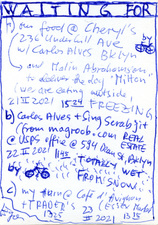 WAITING FOR
a) our food @ Cheryl's
236 Underhill Ave
w/ Carlos Alves Bklyn
and Malin Abrahamsson
to deliver the dog "Mitten"
(we are eating outside
21 II 2021 1524 FREEZING
b) Carlos Alves + Sing
(from magroob.com REAL ESTATE
@ USPS office @ 594 Dean St, Bklyn
22 II 2021 1145 TOTALLY WET
by FROM SNOW...
c) my turn @ Café
+ TRADER'S 1325
23 II 2021 1325